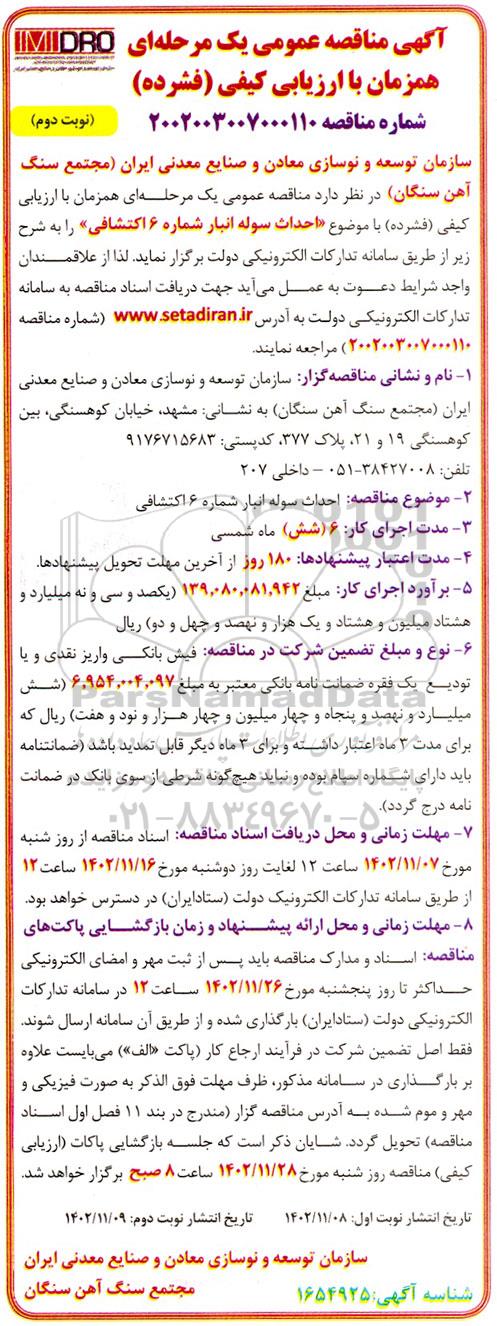 IMIDRO
آگهی مناقصه عمومی یک مرحله‌ای
همزمان با ارزیابی کیفی (فشرده)
شماره مناقصه ۲۰۰۲۰۰۳۰۰۷۰۰۰۱۱۰
(نوبت دوم)
سازمان توسعه و نوسازی معادن و صنایع معدنی ایران (مجتمع سنگ
آهن سنگان) در نظر دارد مناقصه عمومی یک مرحله‌ای همزمان با ارزیابی
کیفی (فشرده) با موضوع «احداث سوله انبار شماره ۶ اکتشافی» را به شرح
زیر از طریق سامانه تدارکات الکترونیکی دولت برگزار نماید. لذا از علاقمندان
واجد شرایط دعوت به عمل می‌آید جهت دریافت اسناد مناقصه به سامانه
تدارکات الکترونیکی دولت به آدرس www.setadiran.ir (شماره مناقصه
۲۰۰۲۰۰۳۰۰۷۰۰۰۱۱۰) مراجعه نمایند.
۱- نام و نشانی مناقصه‌گزار: سازمان توسعه و نوسازی معادن و صنایع معدنی
ایران (مجتمع سنگ آهن سنگان) به نشانی: مشهد، خیابان کوهسنگی، بین
کوهسنگی ۱۹ و ۲۱، پلاک ۳۷۷، کدپستی: ۹۱۷۶۷۱۵۶۸۳
تلفن: ۳۸۴۲۷۰۰۸-۰۵۱ – داخلی ۲۰۷
۲- موضوع مناقصه: احداث سوله انبار شماره ۶ اکتشافی
۳- مدت اجرای کار: ۶ (شش) ماه شمسی
۴- مدت اعتبار پیشنهادها: ۱۸۰ روز از آخرین مهلت تحویل پیشنهادها.
۵- برآورد اجرای کار: مبلغ ۱۳۹,۰۸۰,۰۸۱,۹۴۲ (یکصد و سی و نه میلیارد و
هشتاد میلیون و هشتاد و یک هزار و نهصد و چهل و دو) ریال
۶- نوع و مبلغ تضمین شرکت در مناقصه: فیش بانکی واریز نقدی و یا
تودیع یک فقره ضمانت نامه بانکی معتبر به مبلغ ۶,۹۵۴,۰۰۴,۰۹۷ (شش
میلیارد و نهصد و پنجاه و چهار میلیون و چهار هزار و نود و هفت) ریال که
برای مدت ۳ ماه اعتبار داشته و برای ۳ ماه دیگر قابل تمدید باشد (ضمانتنامه
باید دارای شماره سپام بوده و نباید هیچ‌گونه شرطی از سوی بانک در ضمانت
نامه درج گردد).
۷- مهلت زمانی و محل دریافت اسناد مناقصه: اسناد مناقصه از روز شنبه
مورخ ۱۴۰۲/۱۱/۰۷ ساعت ۱۲ لغایت روز دوشنبه مورخ ۱۴۰۲/۱۱/۱۶ ساعت ۱۲
از طریق سامانه تدارکات الکترونیک دولت (ستادایران) در دسترس خواهد بود.
۸- مهلت زمانی و محل ارائه پیشنهاد و زمان بازگشایی پاکت‌های
مناقصه: اسناد و مدارک مناقصه باید پس از ثبت مهر و امضای الکترونیکی
حداکثر تا روز پنجشنبه مورخ ۱۴۰۲/۱۱/۲۶ ساعت ۱۲ در سامانه تدارکات
الکترونیکی دولت (ستادایران) بارگذاری شده و از طریق آن سامانه ارسال شوند.
فقط اصل تضمین شرکت در فرآیند ارجاع کار (پاکت «الف») می‌بایست علاوه
بر بارگذاری در سامانه مذکور، ظرف مهلت فوق الذکر به صورت فیزیکی و
مهر و موم شده به آدرس مناقصه گزار (مندرج در بند ۱۱ فصل اول اسناد
مناقصه) تحویل گردد. شایان ذکر است که جلسه بازگشایی پاکات (ارزیابی
کیفی) مناقصه روز شنبه مورخ ۱۴۰۲/۱۱/۲۸ ساعت ۸ صبح برگزار خواهد شد.
تاریخ انتشار نوبت اول: ۱۴۰۲/۱۱/۰۸ تاریخ انتشار نوبت دوم: ۱۴۰۲/۱۱/۰۹
سازمان توسعه و نوسازی معادن و صنایع معدنی ایران
مجتمع سنگ آهن سنگان
شناسه آگهی: ۱۶۵۴۹۲۵
ParsNamadData
۰۲۱-۸۸۳۴۹۶۷۰-۵